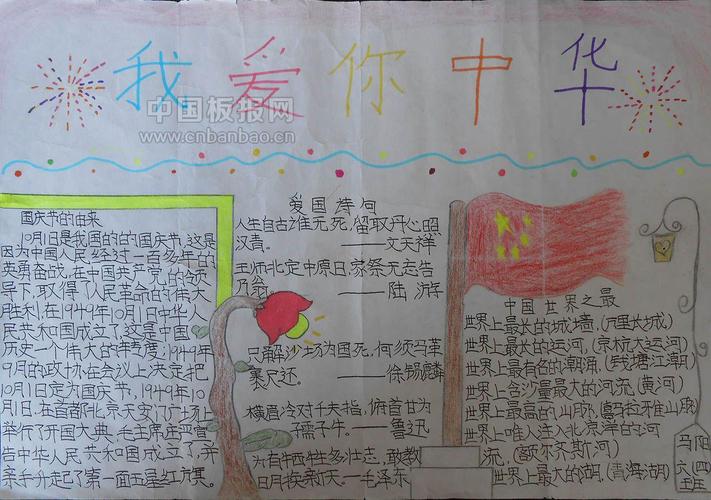 我爱你中华
中国板报网
www.cnbanbao.cn
国庆节的由来
10月1日是我国的的国庆节,这是
因为中国人民经过一百多年的
英勇奋战,在中国共产党的领
导下,取得了人民革命的伟大
胜利,在1949年10月1日中华人
民共和国成立了,这是中国
历史一个伟大的转折,1949年
9月的政协在会议上决定把
10月1日定为国庆节,1949年10
月1日,在首都北京天安门广场上
举行了开国大典,毛主席庄严宣
告中华人民共和国成立了,并
亲手升起了第一面五星红旗。
爱国诗句
人生自古谁无死,留取丹心照
汉青。——文天祥
王师北定中原日,家祭无忘告
乃翁。——陆游
只解沙场为国死,何须马革
裹尺还。——徐锡麟
横眉冷对千夫指,俯首甘为
孺子牛。——鲁迅
为有牺牲多壮志,敢教
日月换新天。—毛泽东
中国世界之最
世界上最长的城墙,(万里长城)
世界上最长的运河,(京杭大运河)
世界上最有名的潮涌,(钱塘江潮)
世界上含沙量最大的河流(黄河)
世界上最高的山脉,(山脉)
世界上唯入注入北冰洋的河
流,(额尔齐斯河)
世界上最大的湖,(青海湖)
马阳
六(四)
班